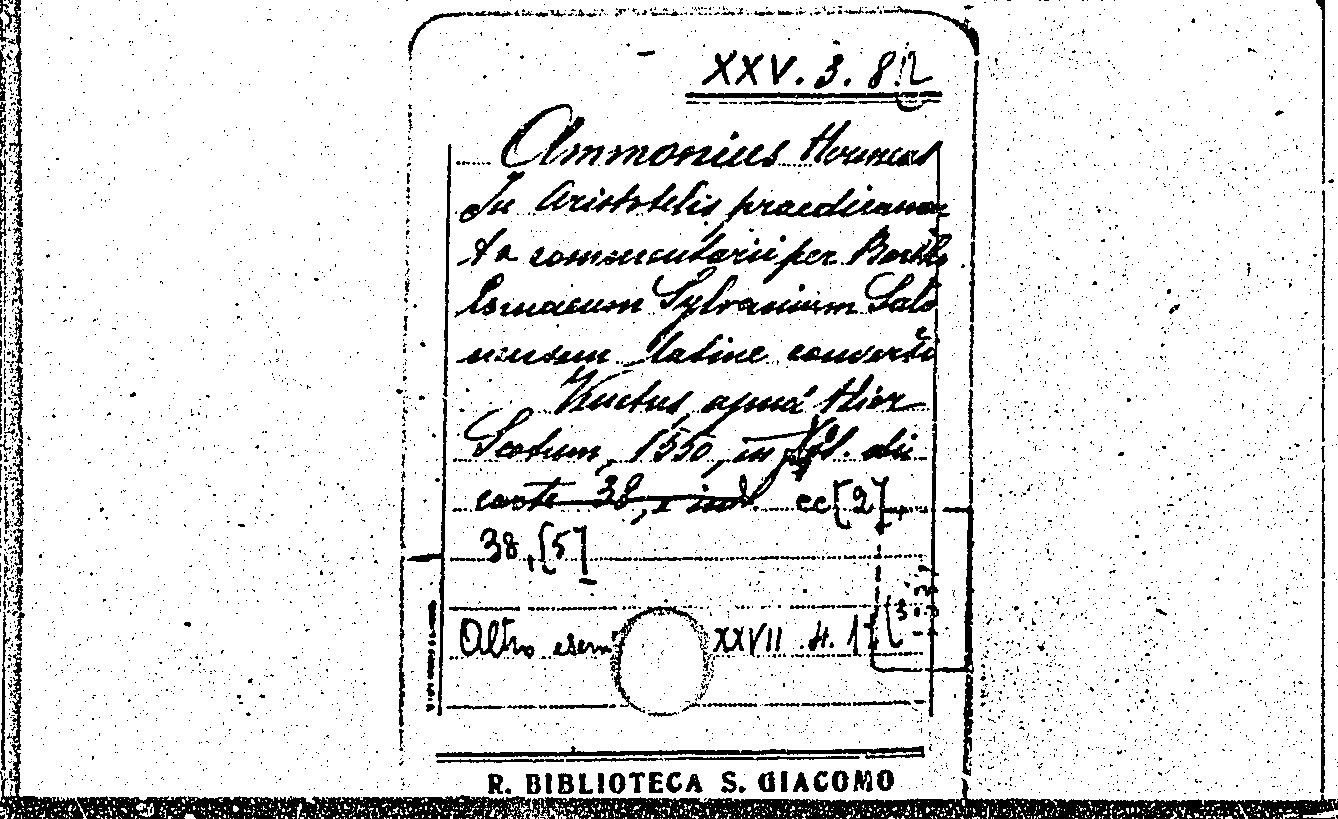 XXV. 3. 8.
Ammonius Hermeas
In Aristotelis praedicamen
ta commentarii per Bartho
lomaeum Sylvanium Salo
nensem latine conversi
apud Hier
Scotum, 1550, in fol. di
carte 38, e ind. cc [2],
38, [5]
Altro esem XXVII. H. 1
R. BIBLIOTECA S. GIACOMO